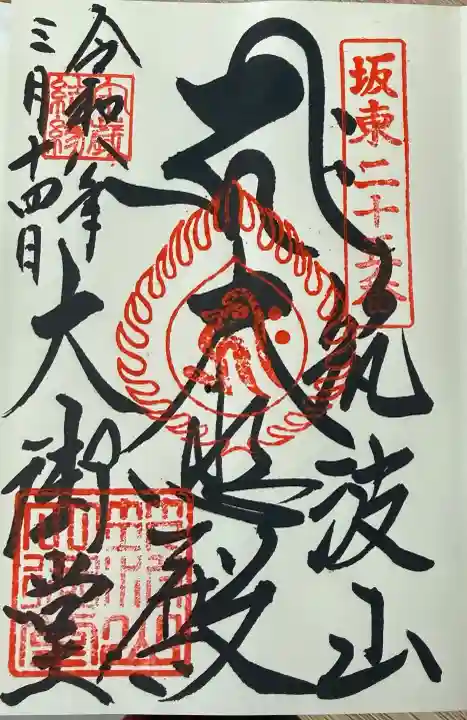 坂東二十五番
筑波山
大悲殿
大御堂
令和八年
三月十四日